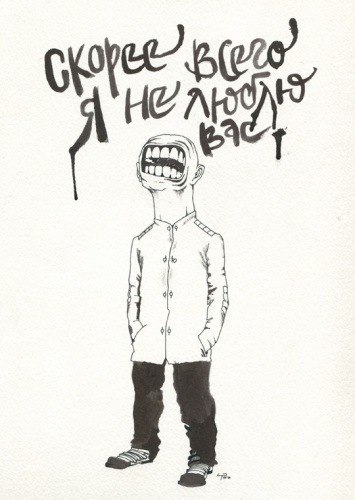 Скорее всего
я не люблю
вас!